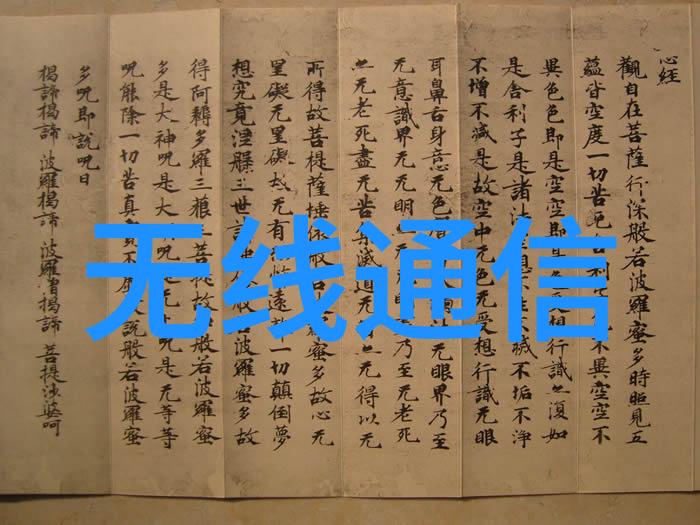 心経
觀自在菩薩行深般若波羅蜜多時照見五
蘊皆空度一切苦厄舍利子不異空空不
異色色即是空空即是色受想行識亦復如
是舍利子是諸法空想不生不滅不垢不淨
不增不減是故空中无色无受想行識无眼
耳鼻舌身意无色法无眼界乃至
无意識界无无明亦无明乃至无老死
亦无老死盡无苦集滅道无亦无得以无
所得故菩提薩埵依般若蜜多故心无
罣礙无罣礙故无有恐怖遠離一切顛倒夢
想究竟涅槃三世諸般若波羅蜜多故
得阿耨多羅三藐三菩提故般若波羅蜜
多是大神呪是大呪是无呪是无等等
呪能除一切苦真實不虛故說般若波羅蜜
多呪即說呪曰
揭諦揭諦 波羅揭諦 波羅僧揭諦 菩提娑婆呵
无线通信